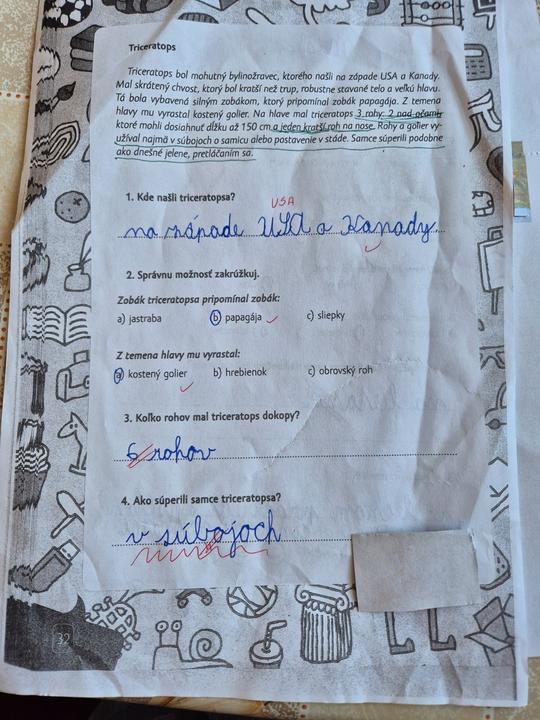 Triceratops
Triceratops bol mohutný bylinožravec, ktorého našli na západe USA a Kanady.
Mal skrátený chvost, ktorý bol kratší než trup, robustne stavané telo a veľkú hlavu.
Tá bola vybavená silným zobákom, ktorý pripomínal zobák papagája. Z temena
hlavy mu vyrastal kostený golier. Na hlave mal triceratops 3 rohy: 2 nad očami,
ktoré mohli dosiahnuť dĺžku až 150 cm a jeden kratší roh na nose. Rohy a golier vy-
užíval najmä v súbojoch o samicu alebo postavenie v stáde. Samce súperili podobne
ako dnešné jelene, pretláčaním sa.
1. Kde našli triceratopsa?
USA
na západe USA a Kanady.
2. Správnu možnosť zakrúžkuj.
Zobák triceratopsa pripomínal zobák:
a) jastraba b) papagája c) sliepky
Z temena hlavy mu vyrastal:
a) kostený golier b) hrebienok c) obrovský roh
3. Koľko rohov mal triceratops dokopy?
6 rohov
4. Ako súperili samce triceratopsa?
v súbojoch
32